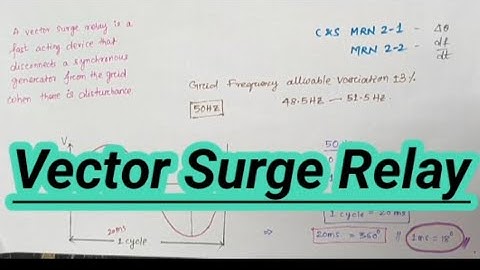 A vector surge relay is a
fast acting device that
disconnects a synchronous
generator from the grid
when there is disturbance
C&S MRN 2-1 - Δθ
MRN 2-2 - df/dt
Grid Frequency allowable variation ±3%
50HZ
48.5HZ — 51.5HZ
V
50
Vector Surge Relay
20ms
1 cycle
1 cycle = 20ms
⇒ 20ms = 360° // 1ms = 18°